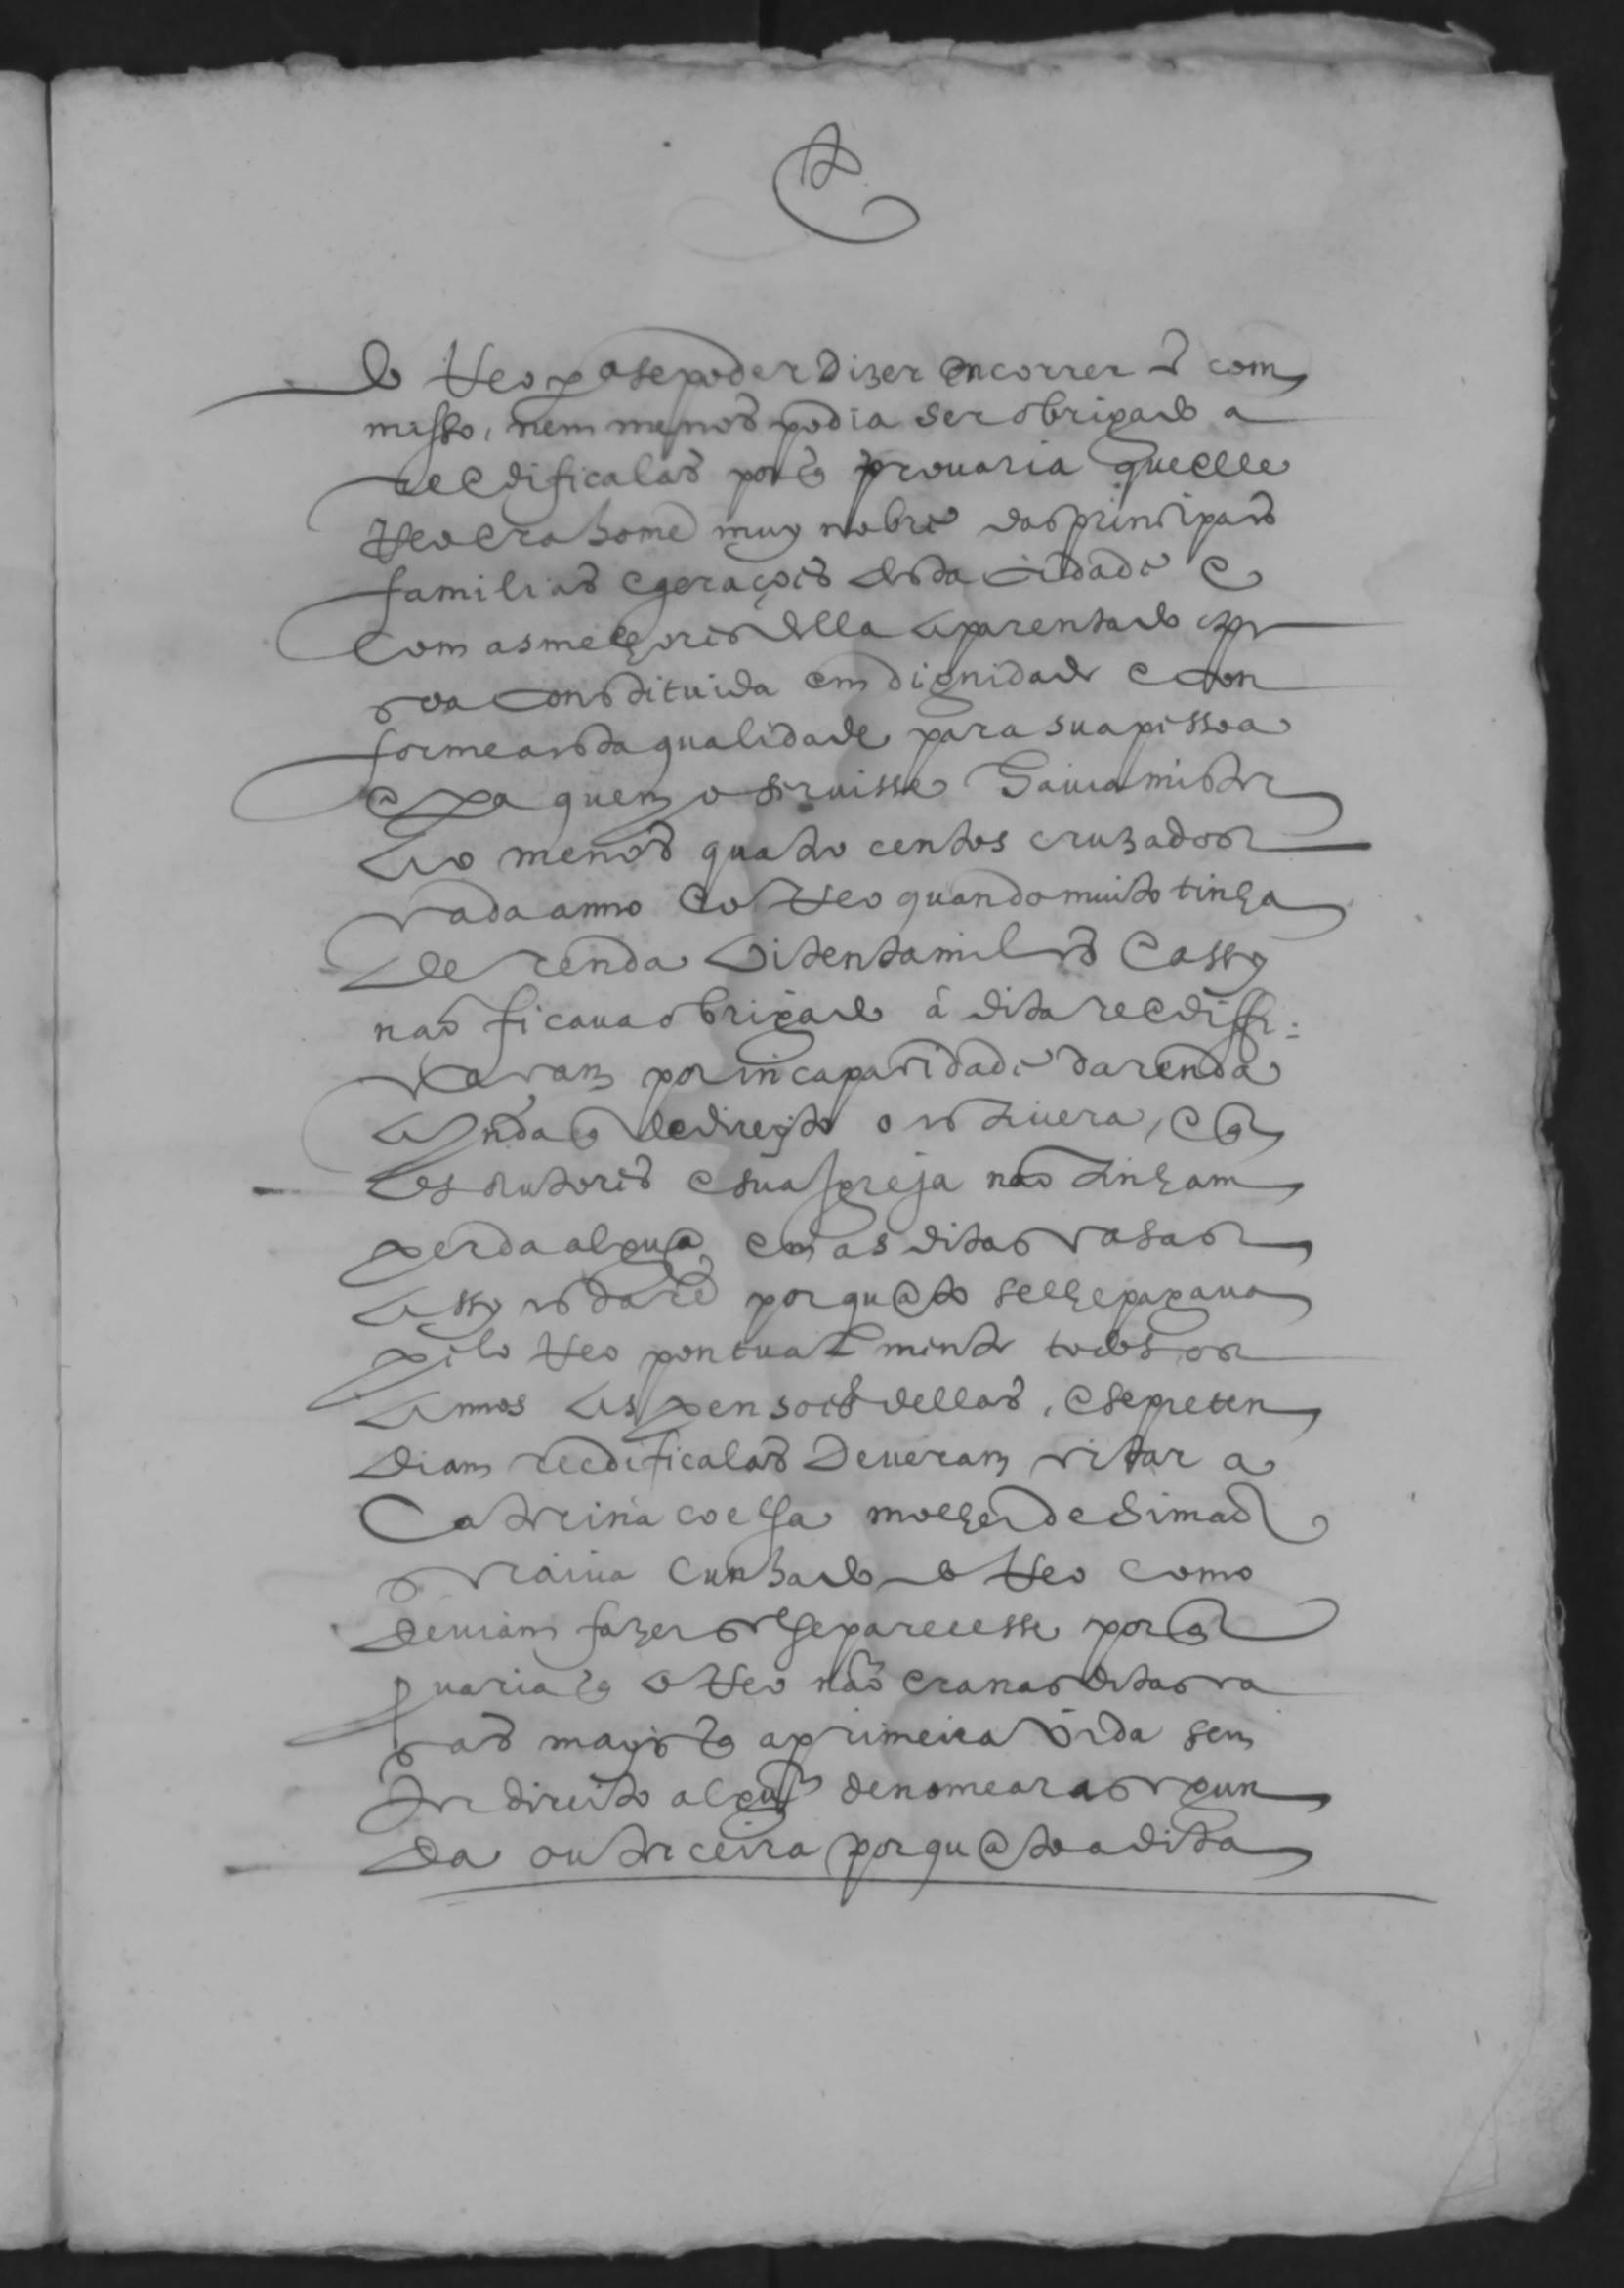 do Reo p.ª se poder dizer encorrer ẽ com
misso, nem menos podia ser obrigado a
reedificalas porq̃ prouaria que elle
Reo era home muy nobre das principais
familias e geraçois desta cidade e
com as melhores della aparentado e pe
soa constituida em dignidade e con
forme a esta qualidade para sua pessoa
e pa quem o seruisse hauia mister
ao menos quatro centos cruzados
cada anno e o Reo quando muito tinha
de renda oitenta mil rs e assy
não ficaua obrigado á dita reediffi:
cacam por incapacidade da renda
aynda q̃ de direyto o estiuera, e q̃
os autores e sua Igreja não tinham
perda algũa em as ditas casas
assy estarẽ porquãto se lhe pagaua
pelo Reo pontualmente todos os
annos as pensois dellas, e se preten
diam reedificalas deueram citar a
Catrina coelha molher de Simão
cunhado do Reo como
deuiam fazer se lhe parecesse porq̃
uaria q̃ o Reo não era nas ditas ca
sas mays q̃ a primeira vida sem
ter direito algũ de nomear a segun
da ou terceira porquãto a dita